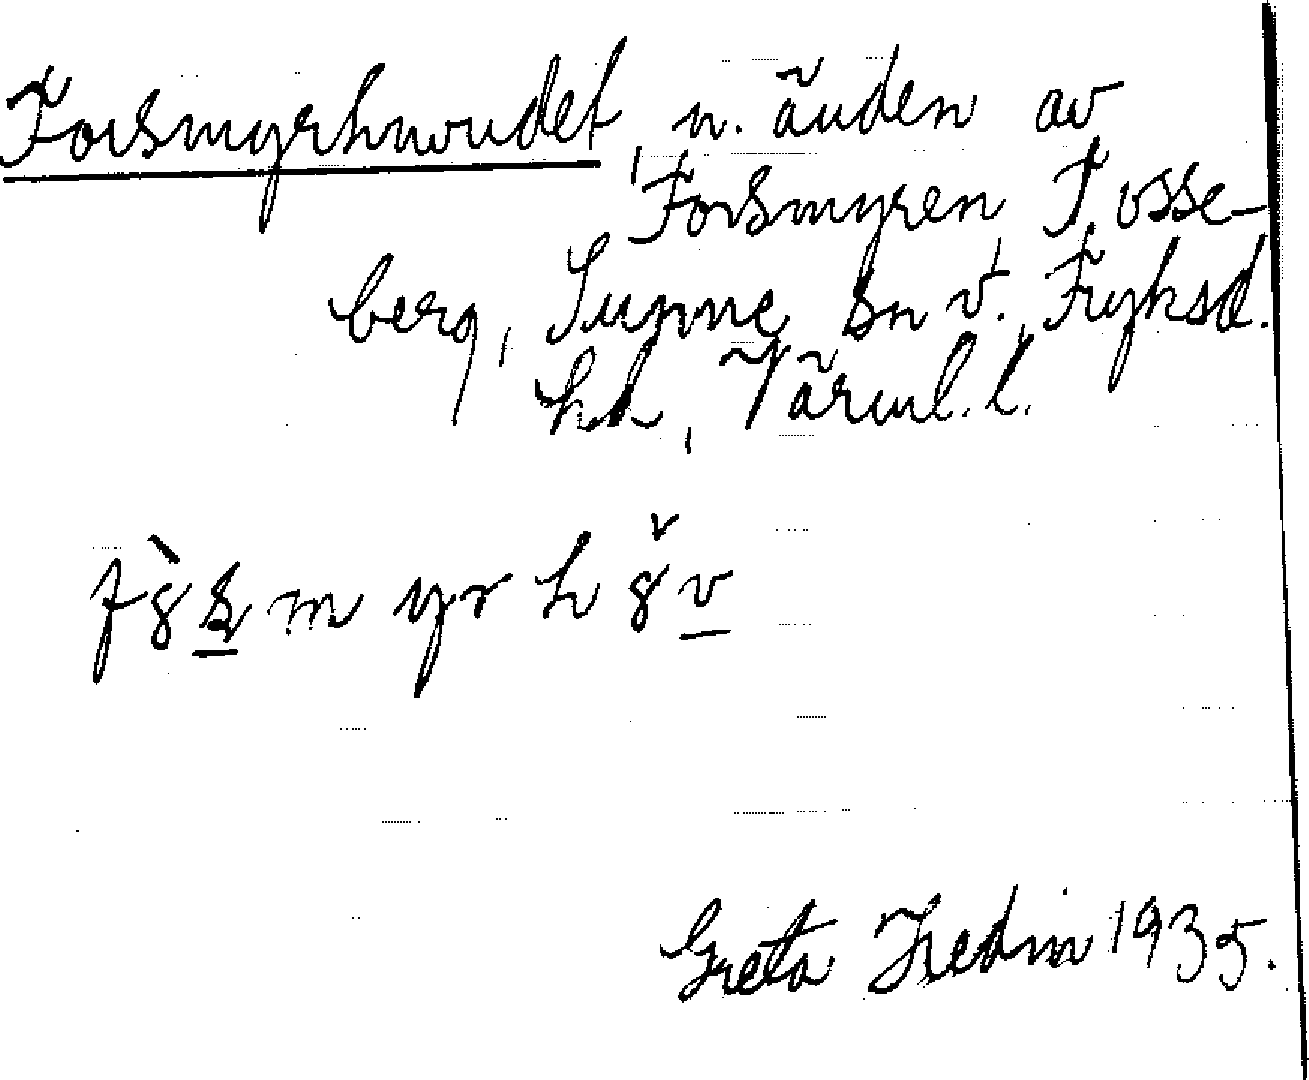 Forsmyrhuvudet n. änden av
Forsmyren, Tosse-
berg, Sunne sn v. Fryksd.
hd, Värml. l.
Greta Hedin 1935.